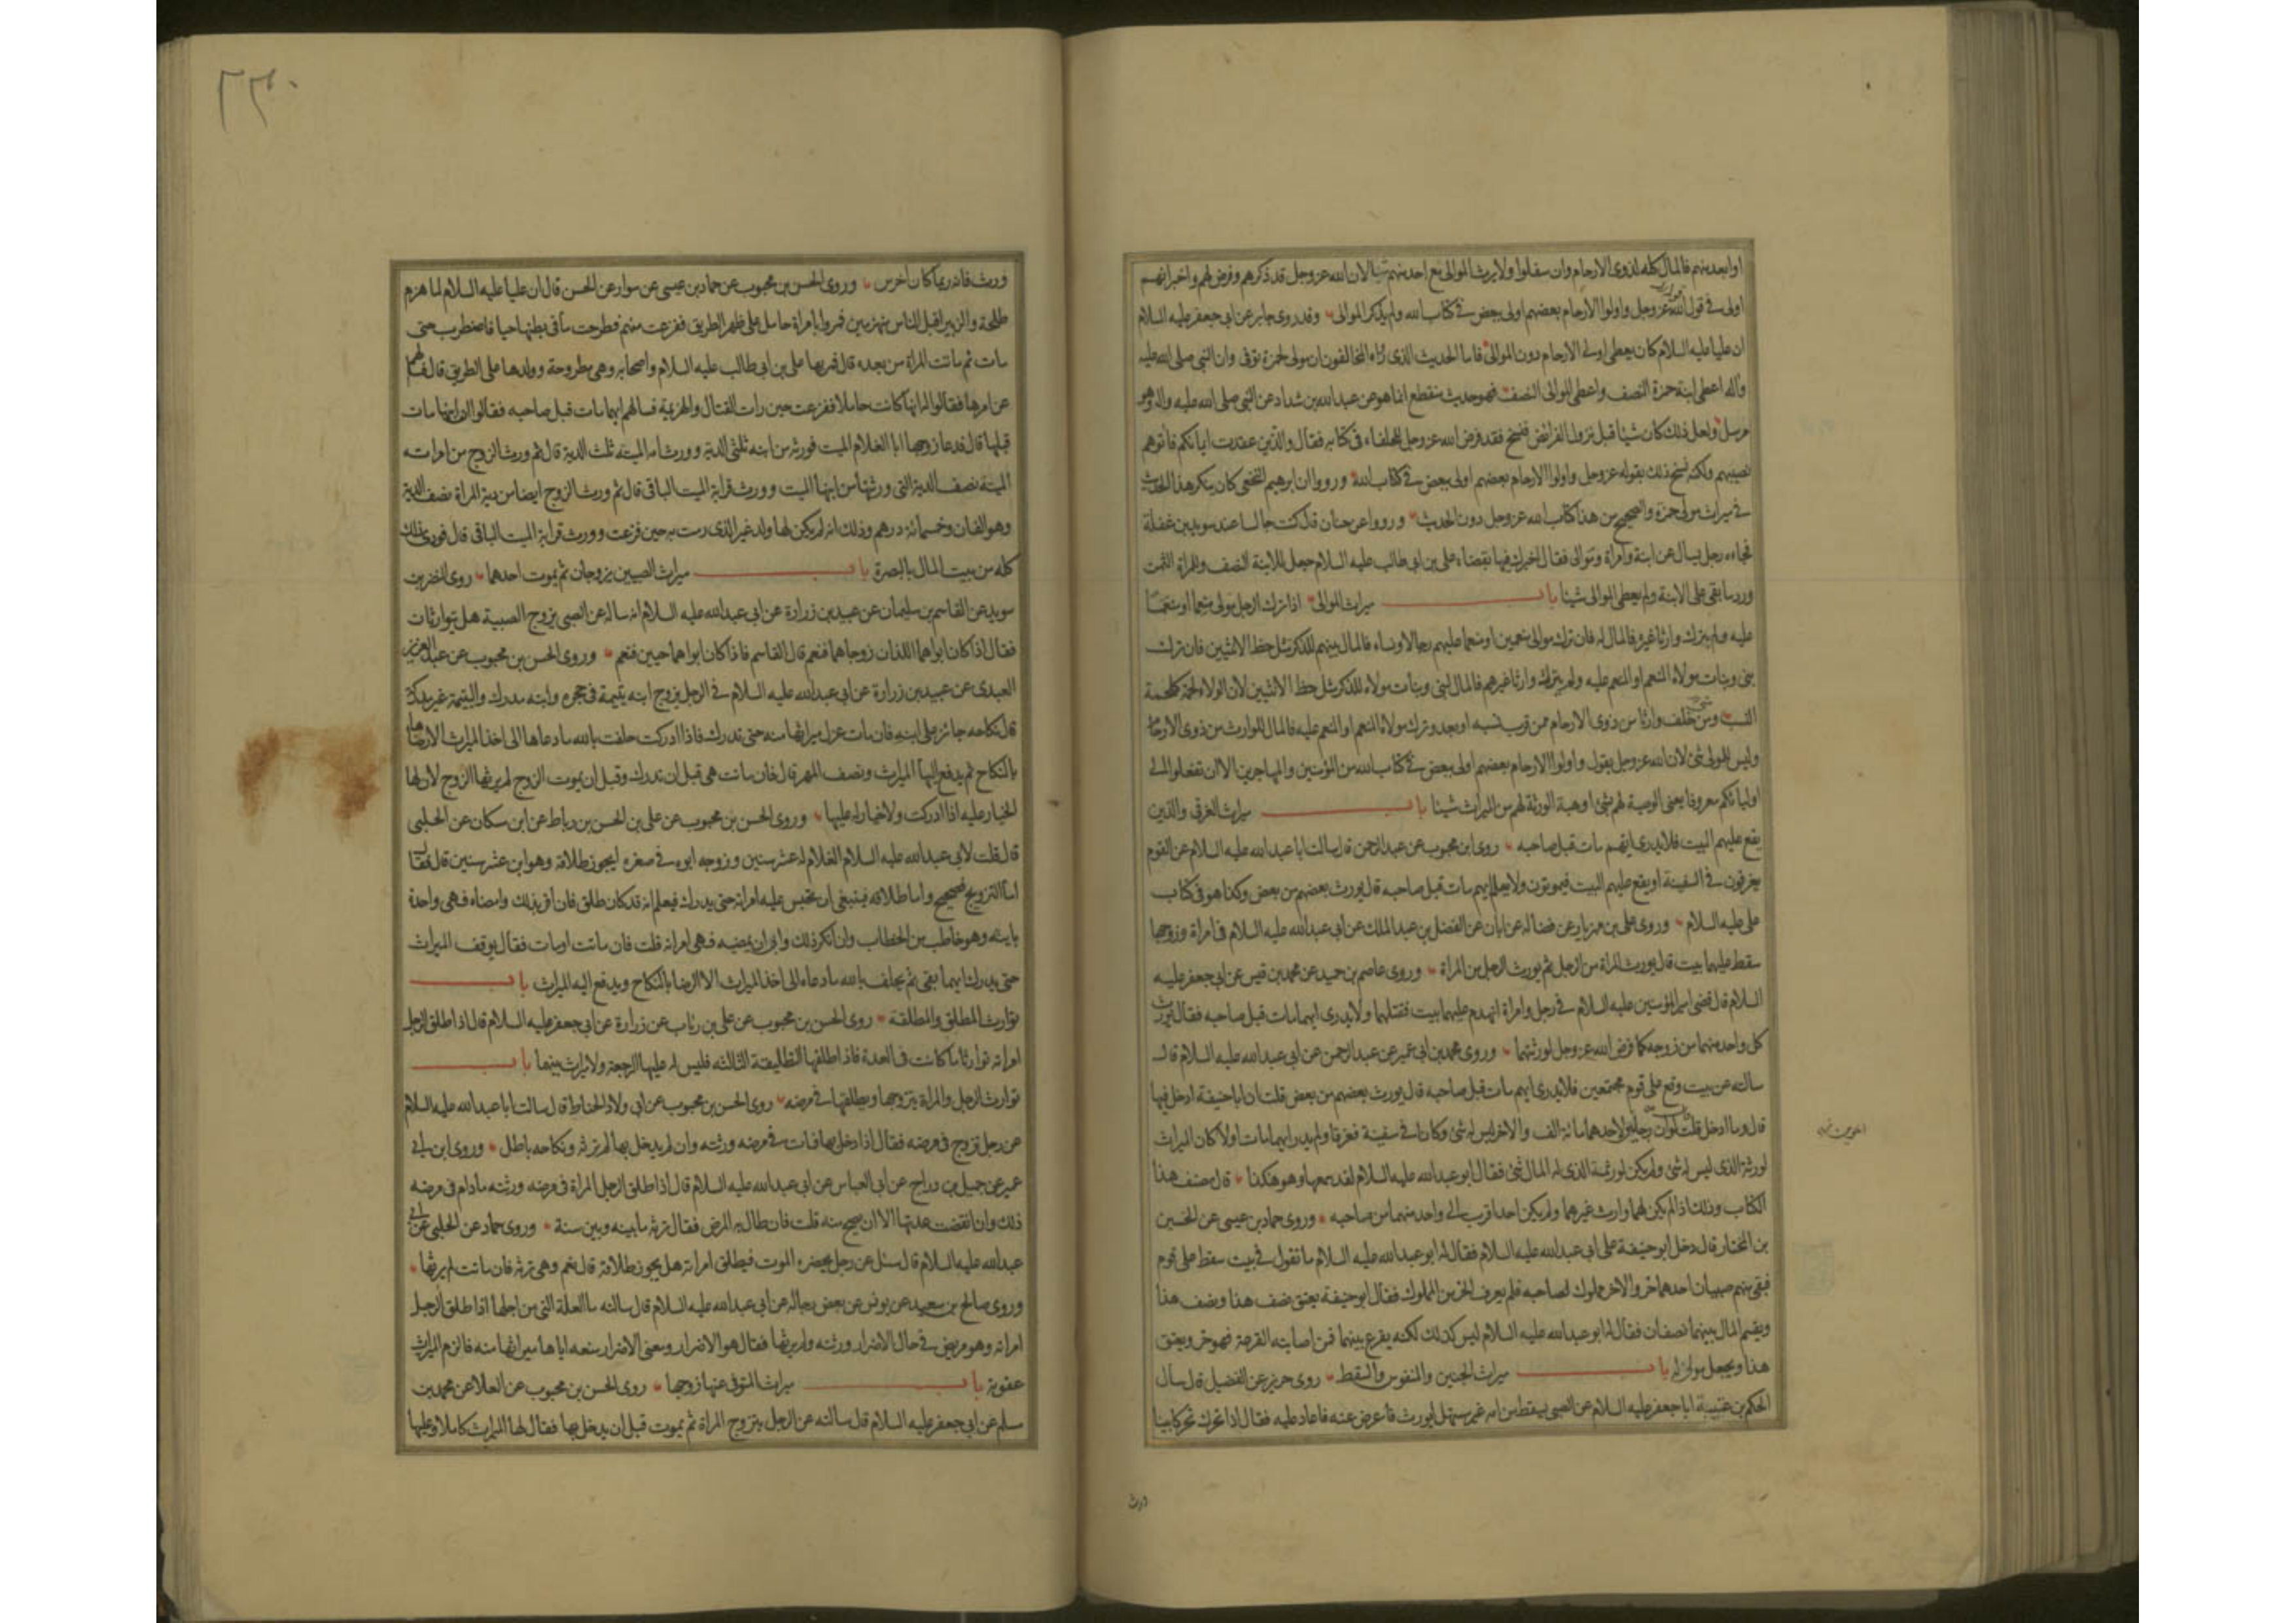 او ابعد منهم فالمال كله لذوى الارحام وان سفلوا ولا يرث الموالى مع احد منهم شيئا لان الله عز وجل قد ذكرهم وفرض لهم واخبر انهم
اولى فى قول الله عز وجل واولوا الارحام بعضهم اولى ببعض فى كتاب الله ولم يذكر الموالى وقد روى جابر عن ابى جعفر عليه السلام
ان عليا عليه السلام كان يعطى اولى الارحام دون الموالى فاما الحديث الذى رواه المخالفون ان مولى لحمزة توفى وان النبى صلى الله عليه
وآله اعطى ابنة حمزة النصف واعطى الموالى النصف فهو حديث منقطع انما هو عن عبد الله بن شداد عن النبى صلى الله عليه وآله وهو
مرسل ولعل ذلك كان شيئا قبل نزول الفرائض فنسخ فقد فرض الله عز وجل للحلفاء فى كتابه فقال والذين عقدت ايمانكم فآتوهم
نصيبهم ولكنه نسخ ذلك بقوله عز وجل واولوا الارحام بعضهم اولى ببعض فى كتاب الله ورووا ان ابرهيم النخعى كان ينكر هذا الحديث
فى ميراث مولى حمزة والصحيح من هذا كتاب الله عز وجل دون الحديث ورووا عن حنان قال كنت جالسا عند سويد بن غفلة
فجاءه رجل يسال عن ابنة وامراة وموالى فقال اخبرك فيها بقضاء على بن ابى طالب عليه السلام جعل للابنة النصف وللمراة الثمن
ورد ما بقى على الابنة ولم يعطى الموالى شيئا باب ميراث الموالى اذا ترك الرجل مولى منعما او منعما
عليه ولم يترك وارثا غيره فالمال له فان ترك موالى منعمين او منعما عليهم رجالا ونساء فالمال بينهم للذكر مثل حظ الانثيين فان ترك
بنى وبنات مولاه المنعم او المنعم عليه ولم يترك وارثا غيرهم فالمال لبنى وبنات مولاه للذكر مثل حظ الانثيين لان الولاء لحمة كلحمة
النسب ومن خلف وارثا من ذوى الارحام ممن قرب نسبه او بعد وترك مولاه المنعم او المنعم عليه فالمال للوارث من ذوى الارحام
وليس للمولى شئ لان الله عز وجل يقول واولوا الارحام بعضهم اولى ببعض فى كتاب الله من المؤمنين والمهاجرين الا ان تفعلوا الى
اوليائكم معروفا يعنى الوصية لهم بشئ او هبة الورثة لهم من الميراث شيئا باب ميراث الغرقى والذين
يقع عليهم البيت فلا يدرى ايهم مات قبل صاحبه روى ابن محبوب عن عبد الرحمن قال سالت ابا عبد الله عليه السلام عن القوم
يغرقون فى السفينة او يقع عليهم البيت فيموتون ولا يعلم ايهم مات قبل صاحبه قال يورث بعضهم من بعض وكذا هو فى كتاب
على عليه السلام وروى على بن مهزيار عن فضالة عن ابان عن الفضل بن عبد الملك عن ابى عبد الله عليه السلام فى امراة وزوجها
سقط عليهما بيت قال يورث المراة من الرجل ثم يورث الرجل من المراة وروى عاصم بن حميد عن محمد بن قيس عن ابى جعفر عليه
السلام قال قضى امير المؤمنين عليه السلام فى رجل وامراة انهدم عليهما بيت فقتلهما ولا يدرى ايهما مات قبل صاحبه فقال يورث
كل واحد منهما من زوجه كما فرض الله عز وجل لورثتهما وروى محمد بن ابى عمير عن عبد الرحمن عن ابى عبد الله عليه السلام قال
سالته عن بيت وقع على قوم مجتمعين فلا يدرى ايهم مات قبل صاحبه قال يورث بعضهم من بعض قلت ان ابا حنيفة ادخل فيها
قال وما ادخل قلت لو ان رجلين لاحدهما مائة الف والاخر ليس له شئ وكانا فى سفينة فغرقا ولم يدر ايهما مات اولا كان الميراث
لورثة الذى ليس له شئ ولم يكن لورثة الذى له المال شئ فقال ابو عبد الله عليه السلام لقد سمعها وهو هكذا قال مصنف هذا
الكتاب وذلك اذا لم يكن لهما وارث غيرهما ولم يكن احد اقرب الى واحد منهما من صاحبه وروى حماد بن عيسى عن الحسين
بن المختار قال دخل ابو حنيفة على ابى عبد الله عليه السلام فقال له ابو عبد الله عليه السلام ما تقول فى بيت سقط على قوم
فبقى منهم صبيان احدهما حر والاخر مملوك لصاحبه فلم يعرف الحر من المملوك فقال ابو حنيفة يعتق نصف هذا ونصف هذا
ويقسم المال بينهما نصفان فقال له ابو عبد الله عليه السلام ليس كذلك لكنه يقرع بينهما فمن اصابته القرعة فهو حر ويعتق
هذا ويجعل مولى له باب ميراث الجنين والمنفوس والسقط روى حريز عن الفضيل قال سال
الحكم بن عتيبة ابا جعفر عليه السلام عن الصبى يسقط من امه غير مستهل ايورث فاعرض عنه فاعاد عليه فقال اذا تحرك تحركا بينا
ورث
٢٢٠
ورث فانه ربما كان اخرس وروى الحسن بن محبوب عن حماد بن عيسى عن سوار عن الحسن قال ان عليا عليه السلام لما هزم
طلحة والزبير اقبل الناس منهزمين فمروا بامراة حامل على ظهر الطريق ففزعت منهم فطرحت ما فى بطنها حيا فاضطرب حتى
مات ثم ماتت المراة من بعده قال فمر بها على بن ابى طالب عليه السلام واصحابه وهى مطروحة وولدها على الطريق قال فسالهم
عن امرها فقالوا له انها كانت حاملا ففزعت حين رات القتال والهزيمة فسالهم ايهما مات قبل صاحبه فقالوا ان ابنها مات
قبلها قال فدعا زوجها ابا الغلام الميت فورثه من ابنه ثلثى الدية وورث امه الميتة ثلث الدية قال ثم ورث الزوج من امراته
الميتة نصف الدية التى ورثتها من ابنها الميت وورث قرابة الميت الباقى قال ثم ورث الزوج ايضا من دية المراة نصف الدية
وهو الفان وخمسمائة درهم وذلك انه لم يكن لها ولد غير الذى رمت به حين فزعت وورث قرابة الميت الباقى قال فودى ذلك
كله من بيت المال بالبصرة باب ميراث الصبيين يزوجان ثم يموت احدهما روى النضر بن
سويد عن القاسم بن سليمان عن عبيد بن زرارة عن ابى عبد الله عليه السلام انه ساله عن الصبى يزوج الصبية هل يتوارثان
فقال اذا كان ابواهما اللذان زوجاهما فنعم قال القاسم فاذا كان ابواهما حيين فنعم وروى الحسن بن محبوب عن عبد العزيز
العبدى عن عبيد بن زرارة عن ابى عبد الله عليه السلام فى الرجل يزوج ابنه يتيمة فى حجره وابنه مدرك واليتيمة غير مدركة
قال نكاحه جائز على ابنه فان مات عزل ميراثها منه حتى تدرك فاذا ادركت حلفت بالله ما دعاها الى اخذ الميراث الا رضاها
بالنكاح ثم يدفع اليها الميراث ونصف المهر قال فان ماتت هى قبل ان تدرك وقبل ان يموت الزوج لم يرثها الزوج لان لها
الخيار عليه اذا ادركت ولا خيار له عليها وروى الحسن بن محبوب عن على بن الحسن بن رباط عن ابن مسكان عن الحلبى
قال قلت لابى عبد الله عليه السلام الغلام له عشر سنين وزوجه ابوه فى صغره ايجوز طلاقه وهو ابن عشر سنين قال فقال
اما التزويج فصحيح واما طلاقه فينبغى ان تحبس عليه امراته حتى يدرك فيعلم انه قد كان طلق فان اقر بذلك وامضاه فهى واحدة
باينة وهو خاطب من الخطاب وان انكر ذلك وابى ان يمضيه فهى امراته قلت فان ماتت او مات فقال يوقف الميراث
حتى يدرك ايهما بقى ثم يحلف بالله ما دعاه الى اخذ الميراث الا الرضا بالنكاح ويدفع اليه الميراث باب
توارث المطلق والمطلقة روى الحسن بن محبوب عن على بن رئاب عن زرارة عن ابى جعفر عليه السلام قال اذا طلق الرجل
امراته توارثا ما كانت فى العدة فاذا طلقها التطليقة الثالثة فليس له عليها الرجعة ولا ميراث بينهما باب
توارث الرجل والمراة يتزوجها ويطلقها فى مرضه روى الحسن بن محبوب عن ابى ولاد الحناط قال سالت ابا عبد الله عليه السلام
عن رجل تزوج فى مرضه فقال اذا دخل بها فمات فى مرضه ورثته وان لم يدخل بها لم ترثه ونكاحه باطل وروى ابن ابى
عمير عن جميل بن دراج عن ابى العباس عن ابى عبد الله عليه السلام قال اذا طلق الرجل المراة فى مرضه ورثته ما دام فى مرضه
ذلك وان انقضت عدتها الا ان يصح منه قلت فان طال به المرض فقال ترثه ما بينه وبين سنة وروى حماد عن الحلبى عن ابى
عبد الله عليه السلام قال سئل عن رجل يحضره الموت فيطلق امراته هل يجوز طلاقه قال نعم وهى ترثه فان ماتت لم يرثها
وروى صالح بن سعيد عن يونس عن بعض رجاله عن ابى عبد الله عليه السلام قال سالته ما العلة التى من اجلها اذا طلق الرجل
امراته وهو مريض فى حال الاضرار ورثته ولم يرثها فقال هو الاضرار ومعنى الاضرار منعه اياها ميراثها منه فالزم الميراث
عقوبة باب ميراث المتوفى عنها زوجها روى الحسن بن محبوب عن العلا عن محمد بن
مسلم عن ابى جعفر عليه السلام قال سالته عن الرجل يتزوج المراة ثم يموت قبل ان يدخل بها فقال لها الميراث كاملا وعليها